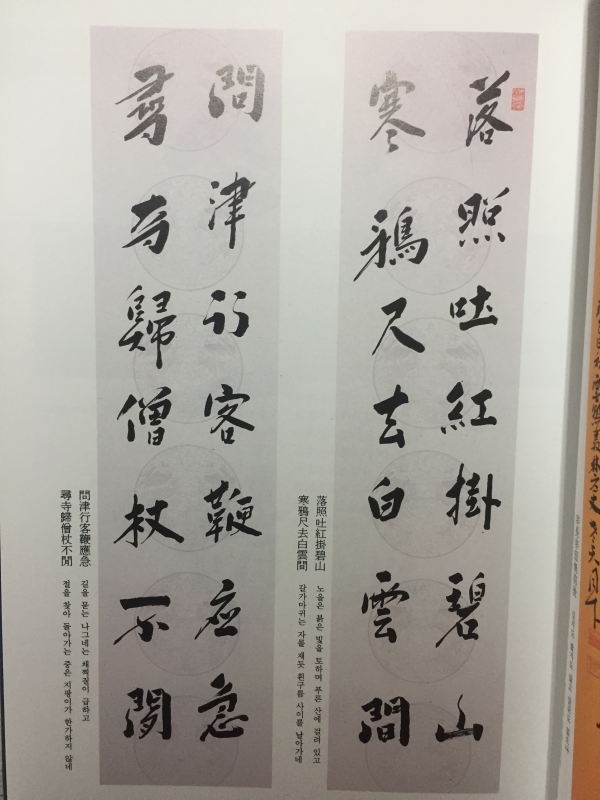 落照吐紅掛碧山
寒鴉尺去白雲間
落照吐紅掛碧山
寒鴉尺去白雲間
노을은 붉은 빛을 토하며 푸른 산에 걸려 있고
갈가마귀는 자를 재듯 흰구름 사이를 날아가네
問津行客鞭应急
尋寺歸僧杖不閑
問津行客鞭應急
尋寺歸僧杖不閒
길을 묻는 나그네는 채찍질이 급하고
절을 찾아 돌아가는 중은 지팡이가 한가하지 않네